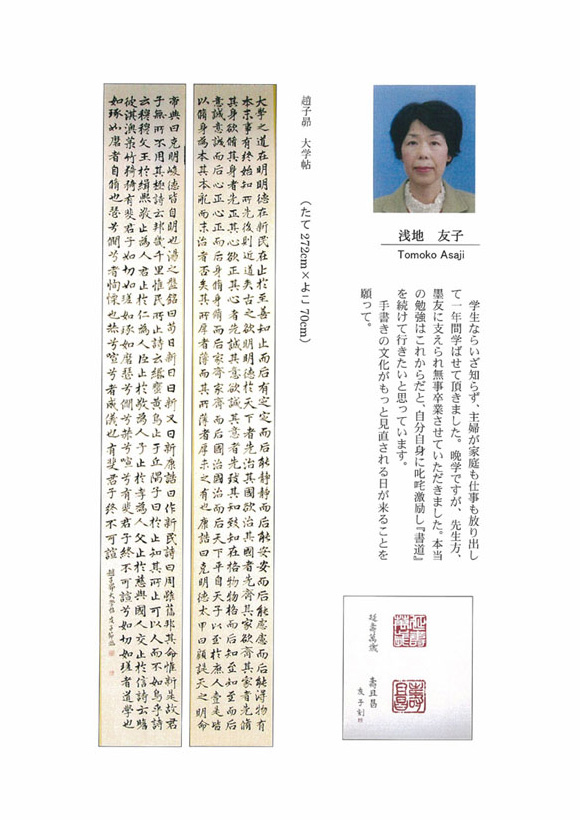 浅地　友子
Tomoko Asaji
学生ならいざ知らず、主婦が家庭も仕事も放り出し
て一年間学ばせて頂きました。晩学ですが、先生方、
墨友に支えられ無事卒業させていただきました。本当
の勉強はこれからだと、自分自身に叱咤激励し『書道』
を続けて行きたいと思っています。
手書きの文化がもっと見直される日が来ることを
願って。
延壽萬歳
壽且昌
友子刻
趙子昴　大学帖　（たて 272cm×よこ 70cm）
大學之道在明明德在新民在止於至善知止而后有定定而后能静静而后能安安而后能慮慮而后能得物有
本末事有終始知所先後則近道矣古之欲明明德於天下者先治其國欲治其國者先齊其家欲齊其家者先脩
其身欲脩其身者先正其心欲正其心者先誠其意欲誠其意者先致其知致知在格物物格而后知至知至而后
意誠意誠而后心正心正而后身脩身脩而后家齊家齊而后國治國治而后天下平自天子以至於庶人壹是皆
以脩身為本其本亂而末治者否矣其所厚者薄而其所薄者厚未之有也康誥曰克明德太甲曰顧諟天之明命
帝典曰克明峻德皆自明也湯之盤銘曰苟日新日日新又日新康誥曰作新民詩曰周雖舊邦其命惟新是故君
子無所不用其極詩云邦畿千里惟民所止詩云緡蠻黄鳥止于丘隅子曰於止知其所止可以人而不如鳥乎詩
云穆穆文王於緝熙敬止為人君止於仁為人臣止於敬為人子止於孝為人父止於慈與國人交止於信詩云瞻
彼淇澳菉竹猗猗有斐君子如切如磋如琢如磨瑟兮僩兮赫兮喧兮有斐君子終不可諠兮如切如磋者道學也
如琢如磨者自脩也瑟兮僩兮者恂慄也赫兮喧兮者威儀也有斐君子終不可諠
趙子昂大學帖 友子臨